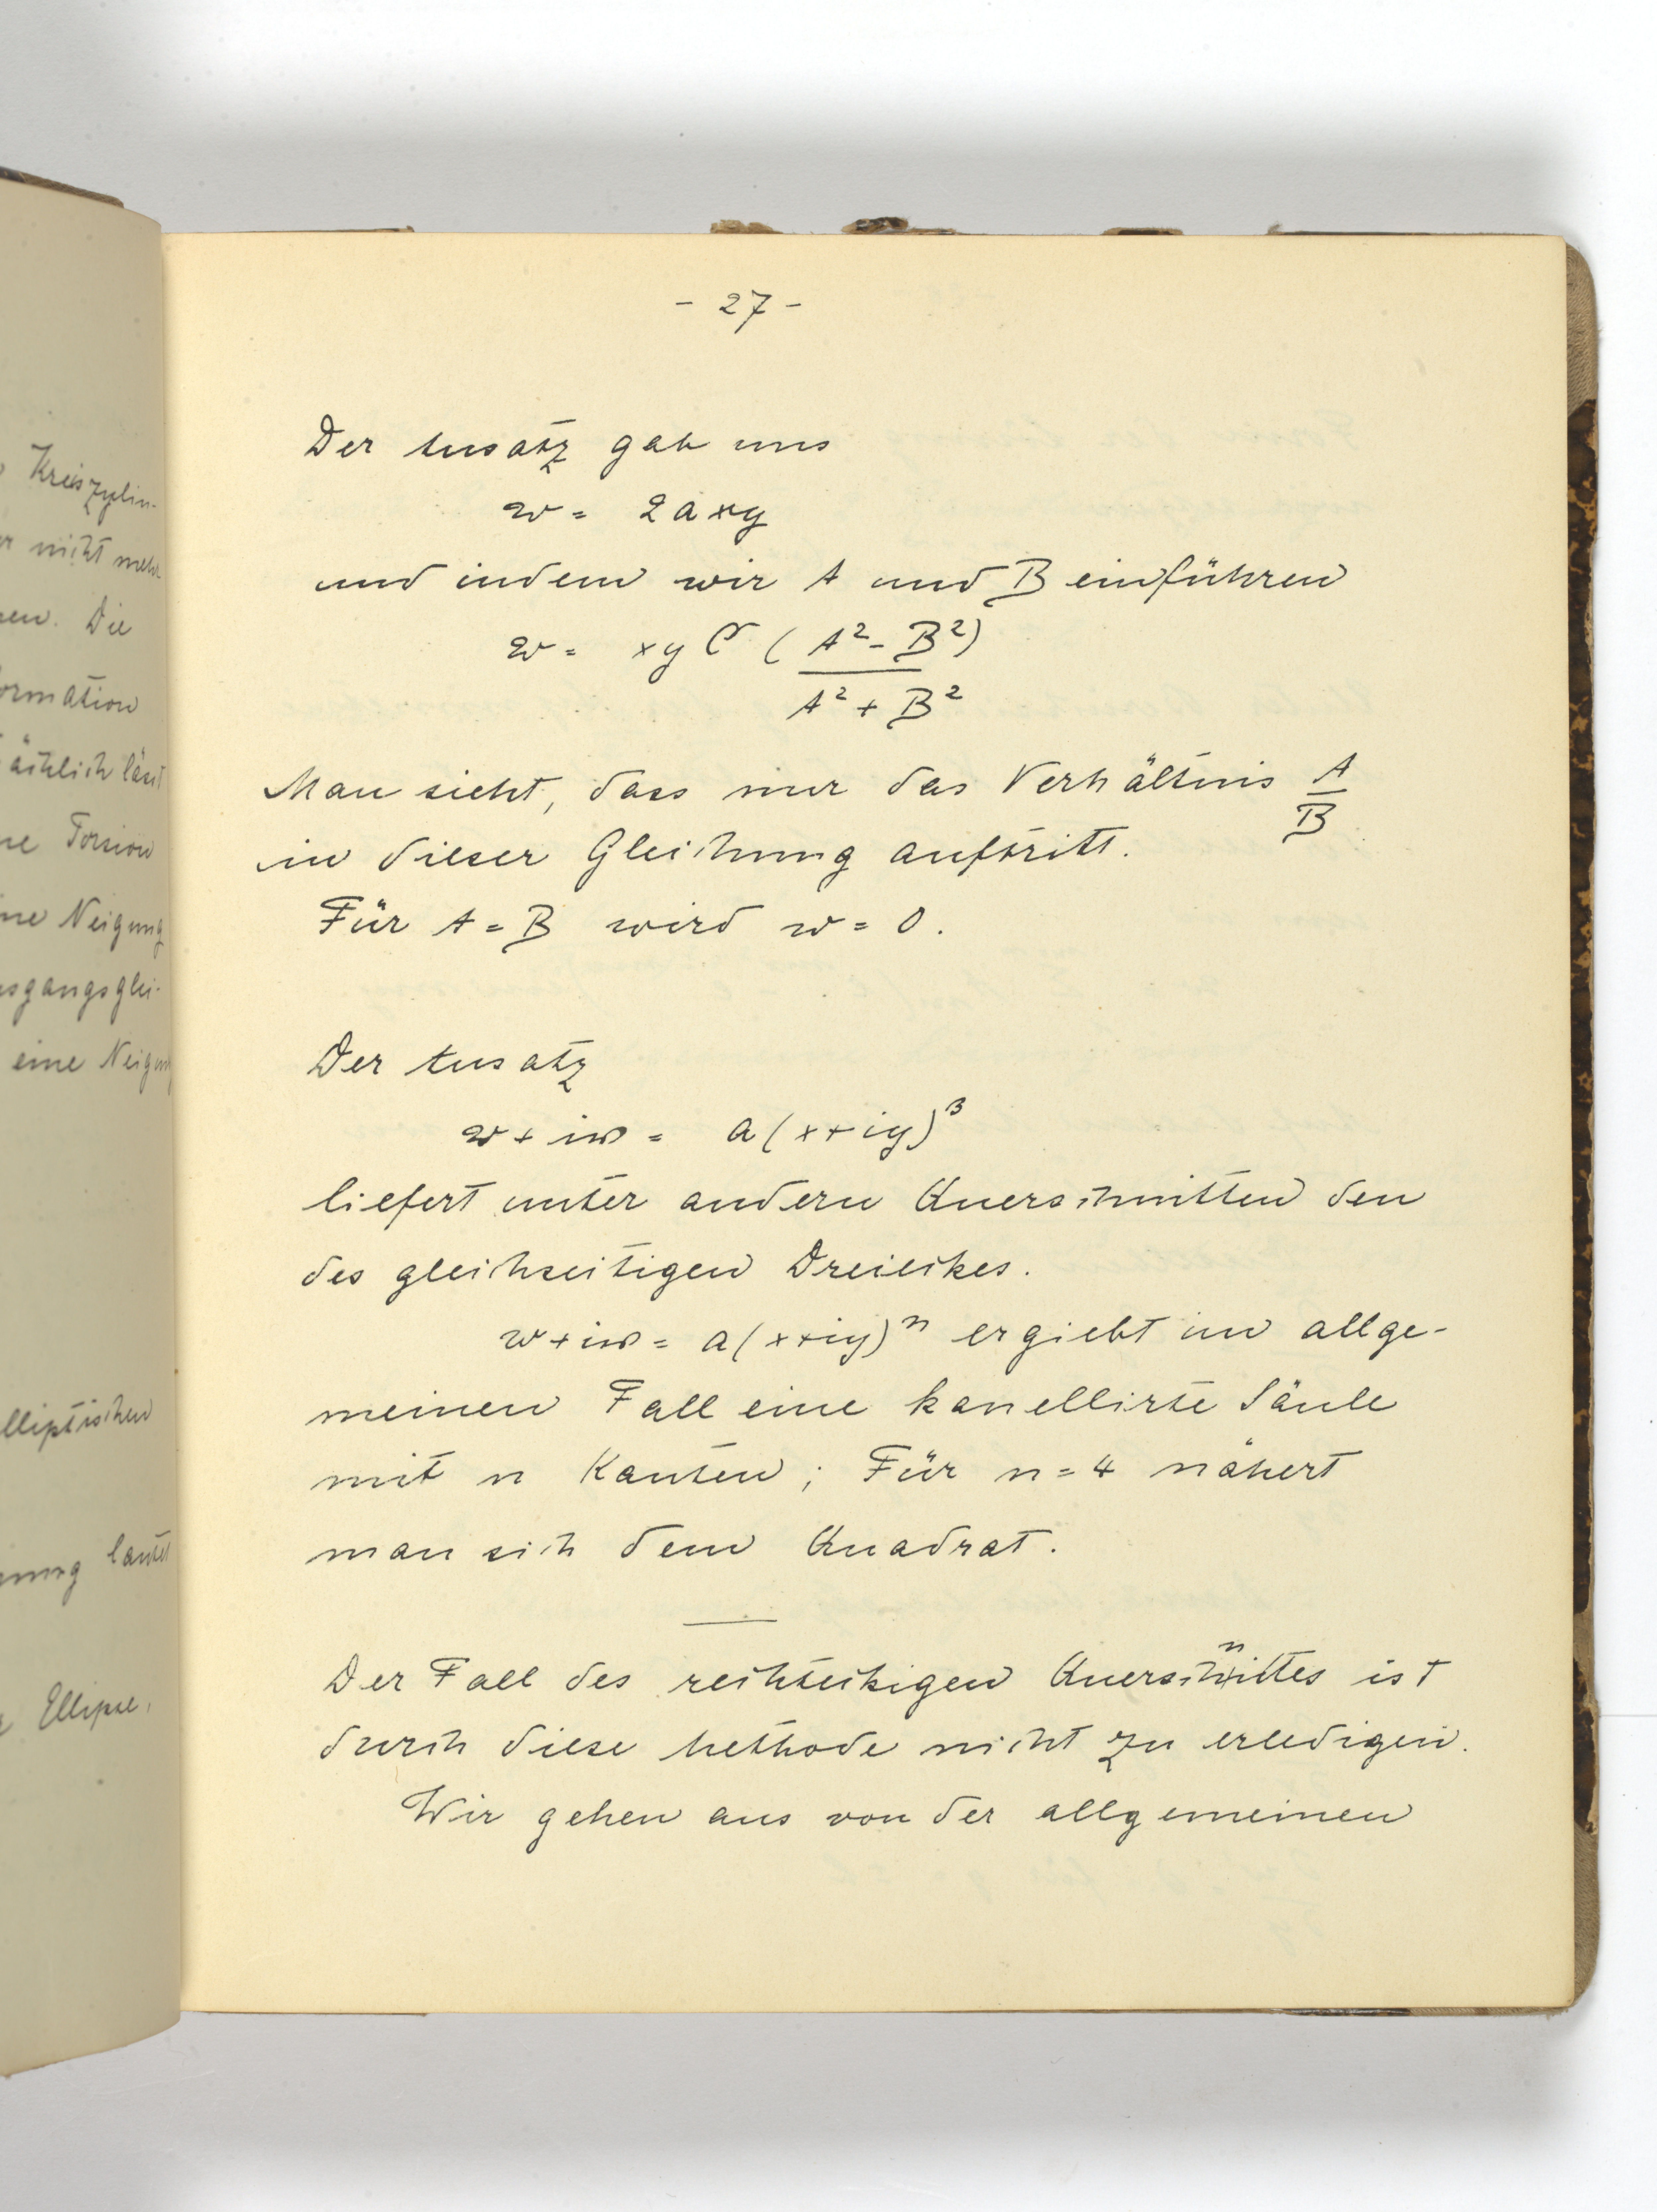 Kreiszylin-
nicht mehr
en. Die
ormation
ächlich lässt
ne Torsion
ne Neigung
sgangsglei-
eine Neigung
lliptischen
nung lautet
Ellipse,
- 27 -
Der Ansatz gab uns
w = 2axy
und indem wir A und B einführen
w = xy C (A² - B²)
A² + B²
Man sieht, dass nur das Verhältnis A/B
in dieser Gleichung auftritt.
Für A = B wird w = 0.
Der Ansatz
w + iw = a(x+iy)³
liefert unter andern Querschnitten den
des gleichseitigen Dreieckes.
w + iw = a(x+iy)ⁿ ergiebt im allge-
meinen Fall eine kanellirte Säule
mit n Kanten; Für n = 4 nähert
man sich dem Quadrat.
Der Fall des rechteckigen Querschnittes ist
durch diese Methode nicht zu erledigen.
Wir gehen aus von der allgemeinen